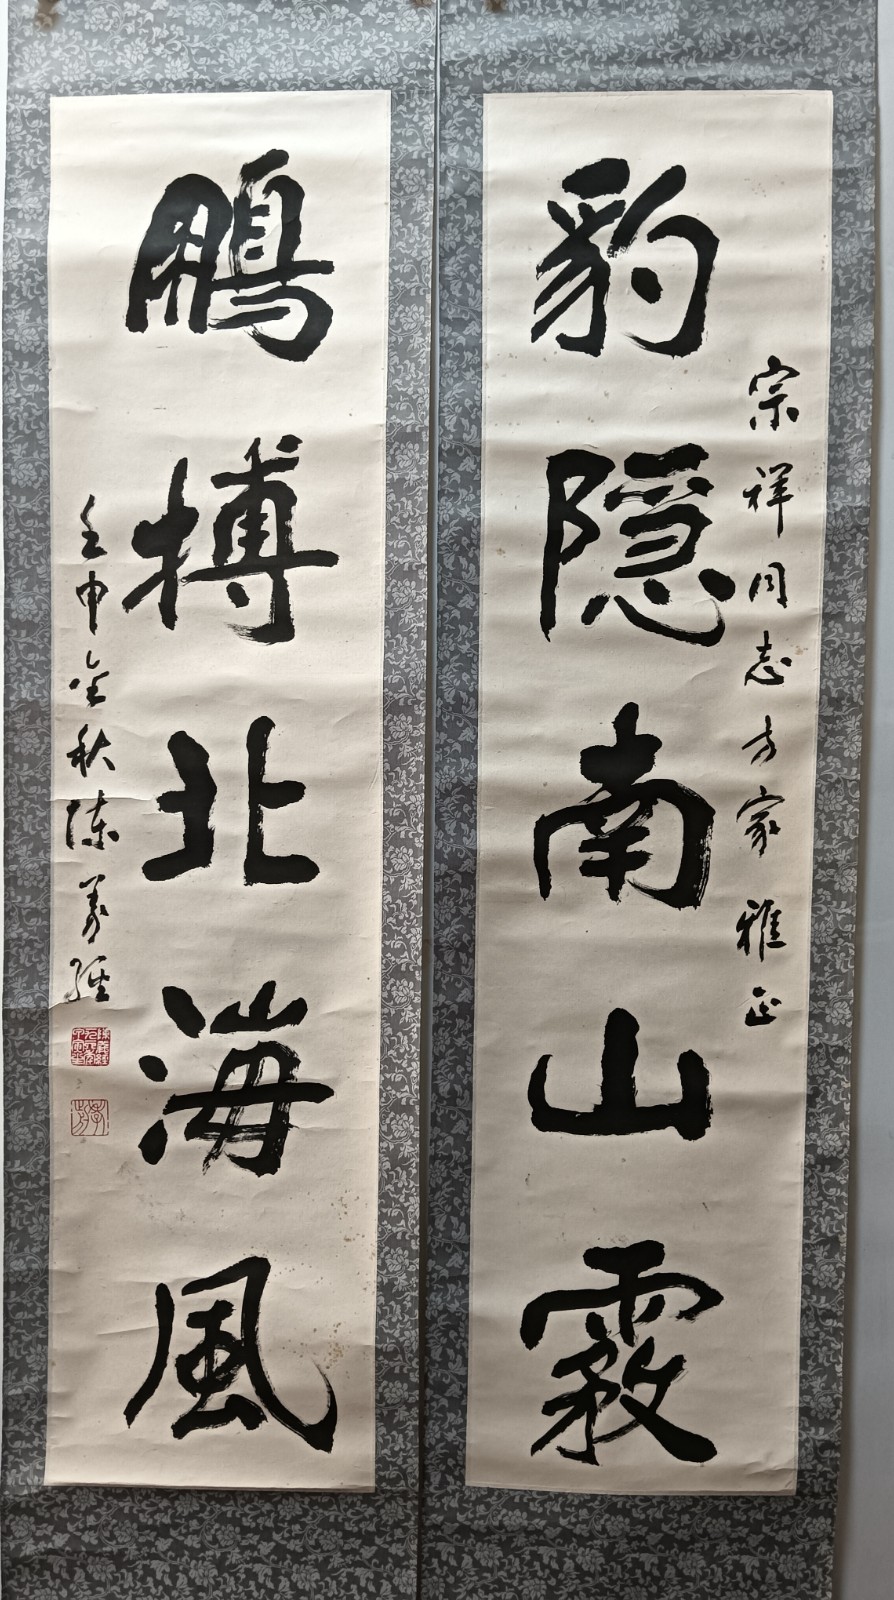 豹隱南山霧
宗祥同志方家雅正
鵬搏北海風
壬申金秋陳義經